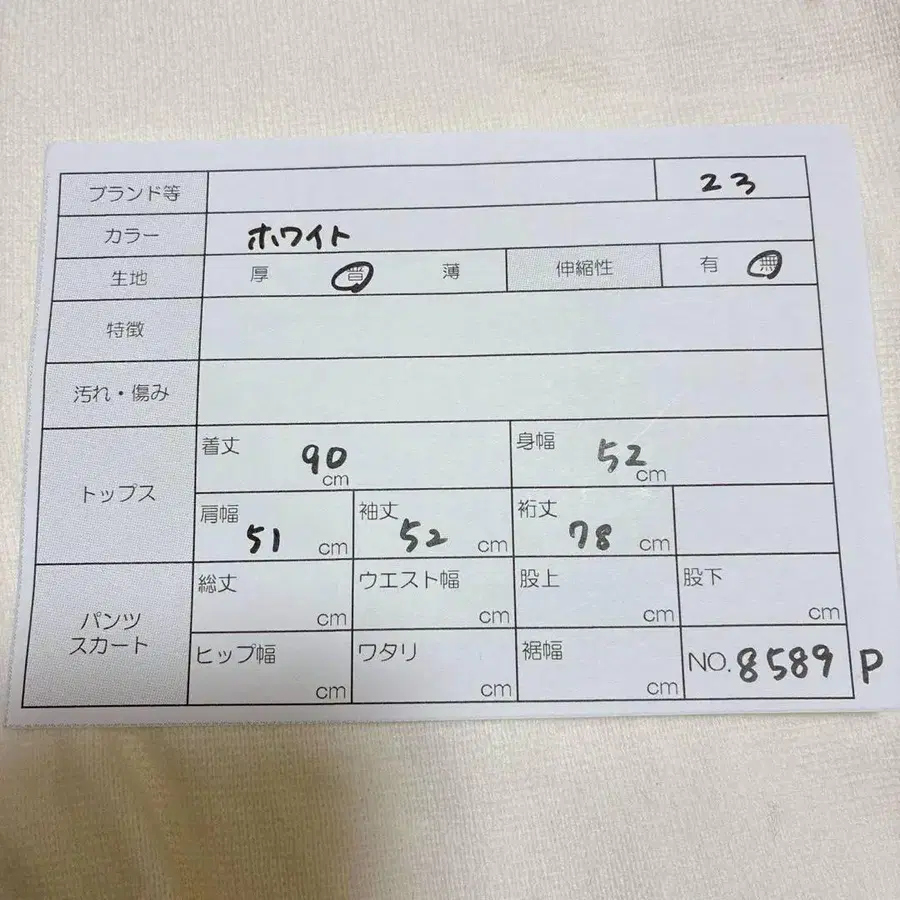 ブランド等 23
カラー ホワイト
生地 厚 普 薄 伸縮性 有 無
特徴
汚れ・傷み
トップス
着丈 90 cm 身幅 52 cm
肩幅 51 cm 袖丈 52 cm 裄丈 78 cm
パンツ
スカート
総丈 cm ウエスト幅 cm 股上 cm 股下 cm
ヒップ幅 cm ワタリ cm 裾幅 cm NO. 8589 P